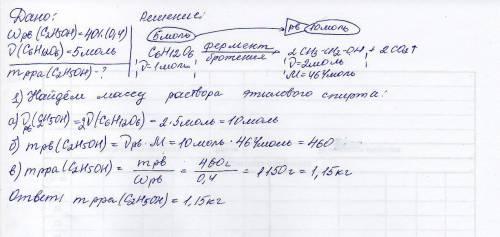 Дано:
Решение:
ωрв(C2H5OH)=40%(0,4)
ν(C6H12O6)=5моль
mрра(C2H5OH)-?
5моль
рв 10моль
C6H12O6 фермент брожения 2CH3-CH2-OH + 2CO2↑
ν=1моль
ν=2моль
M=46г/моль
1) Найдём массу раствора этилового спирта:
а) νрв(C2H5OH)=2ν(C6H12O6)=2·5моль=10моль
б) mрв(C2H5OH)=νрв·M=10моль·46г/моль=460
в) mрра(C2H5OH)=mрв/ωрв=460г/0,4=1150г=1,15кг
Ответ: mрра(C2H5OH)=1,15кг